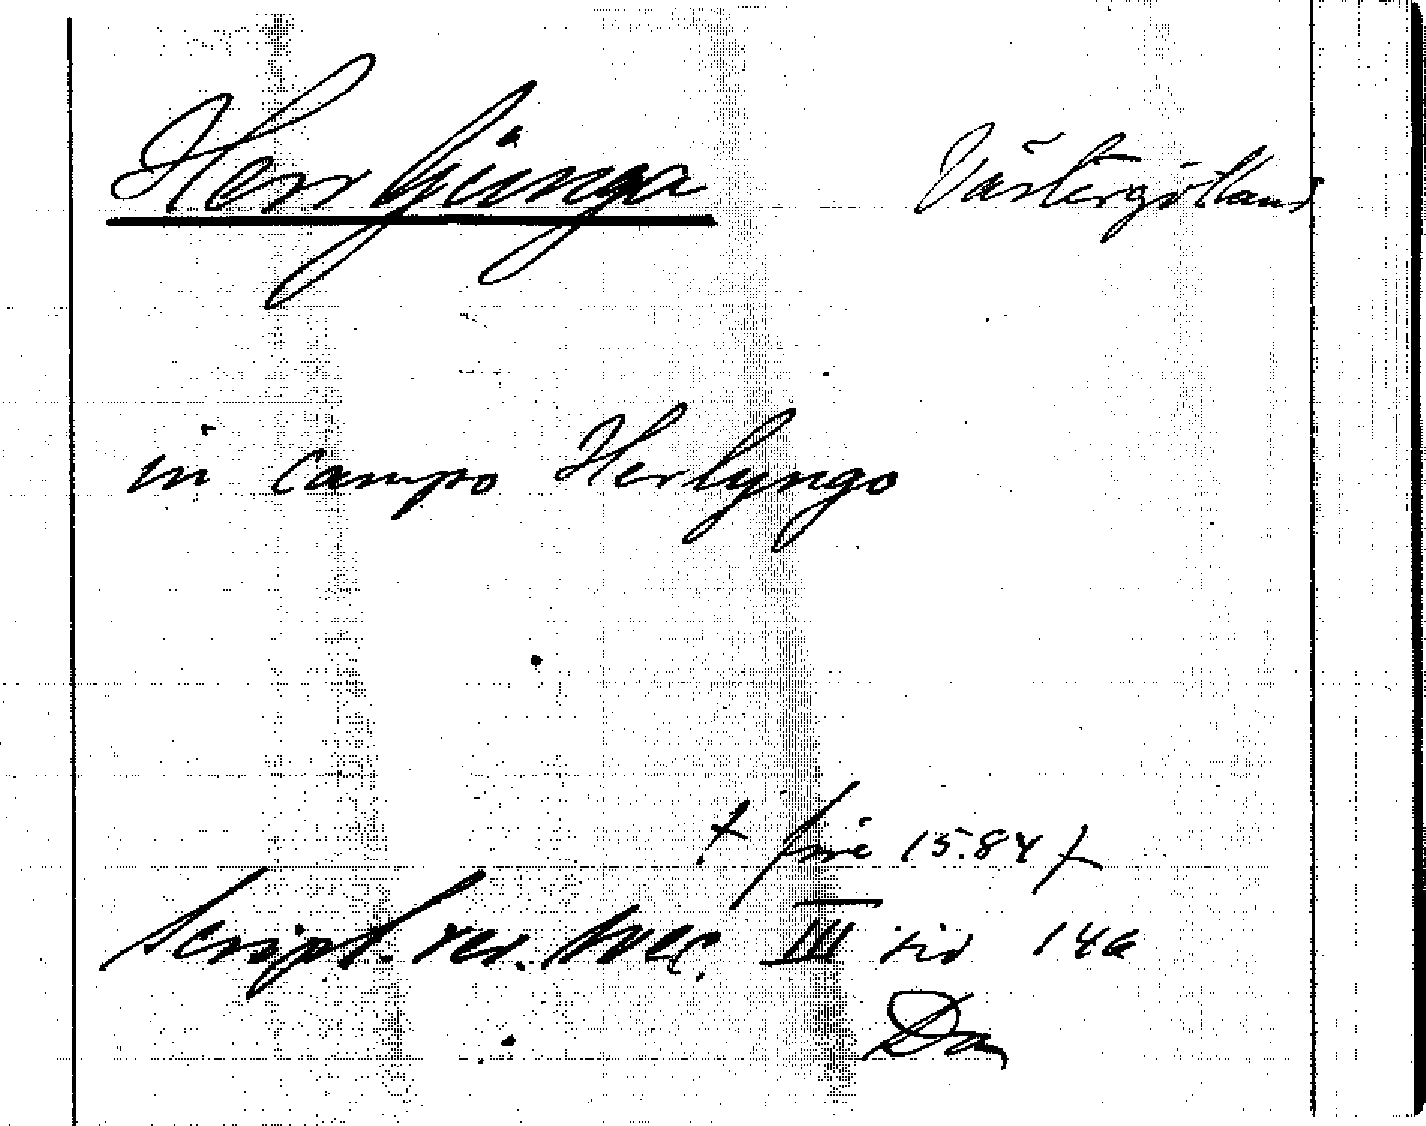 Herrljunga Västergötland
in campo Herlyngo
† före 1584 †
Script. rer. svec. III sid 146